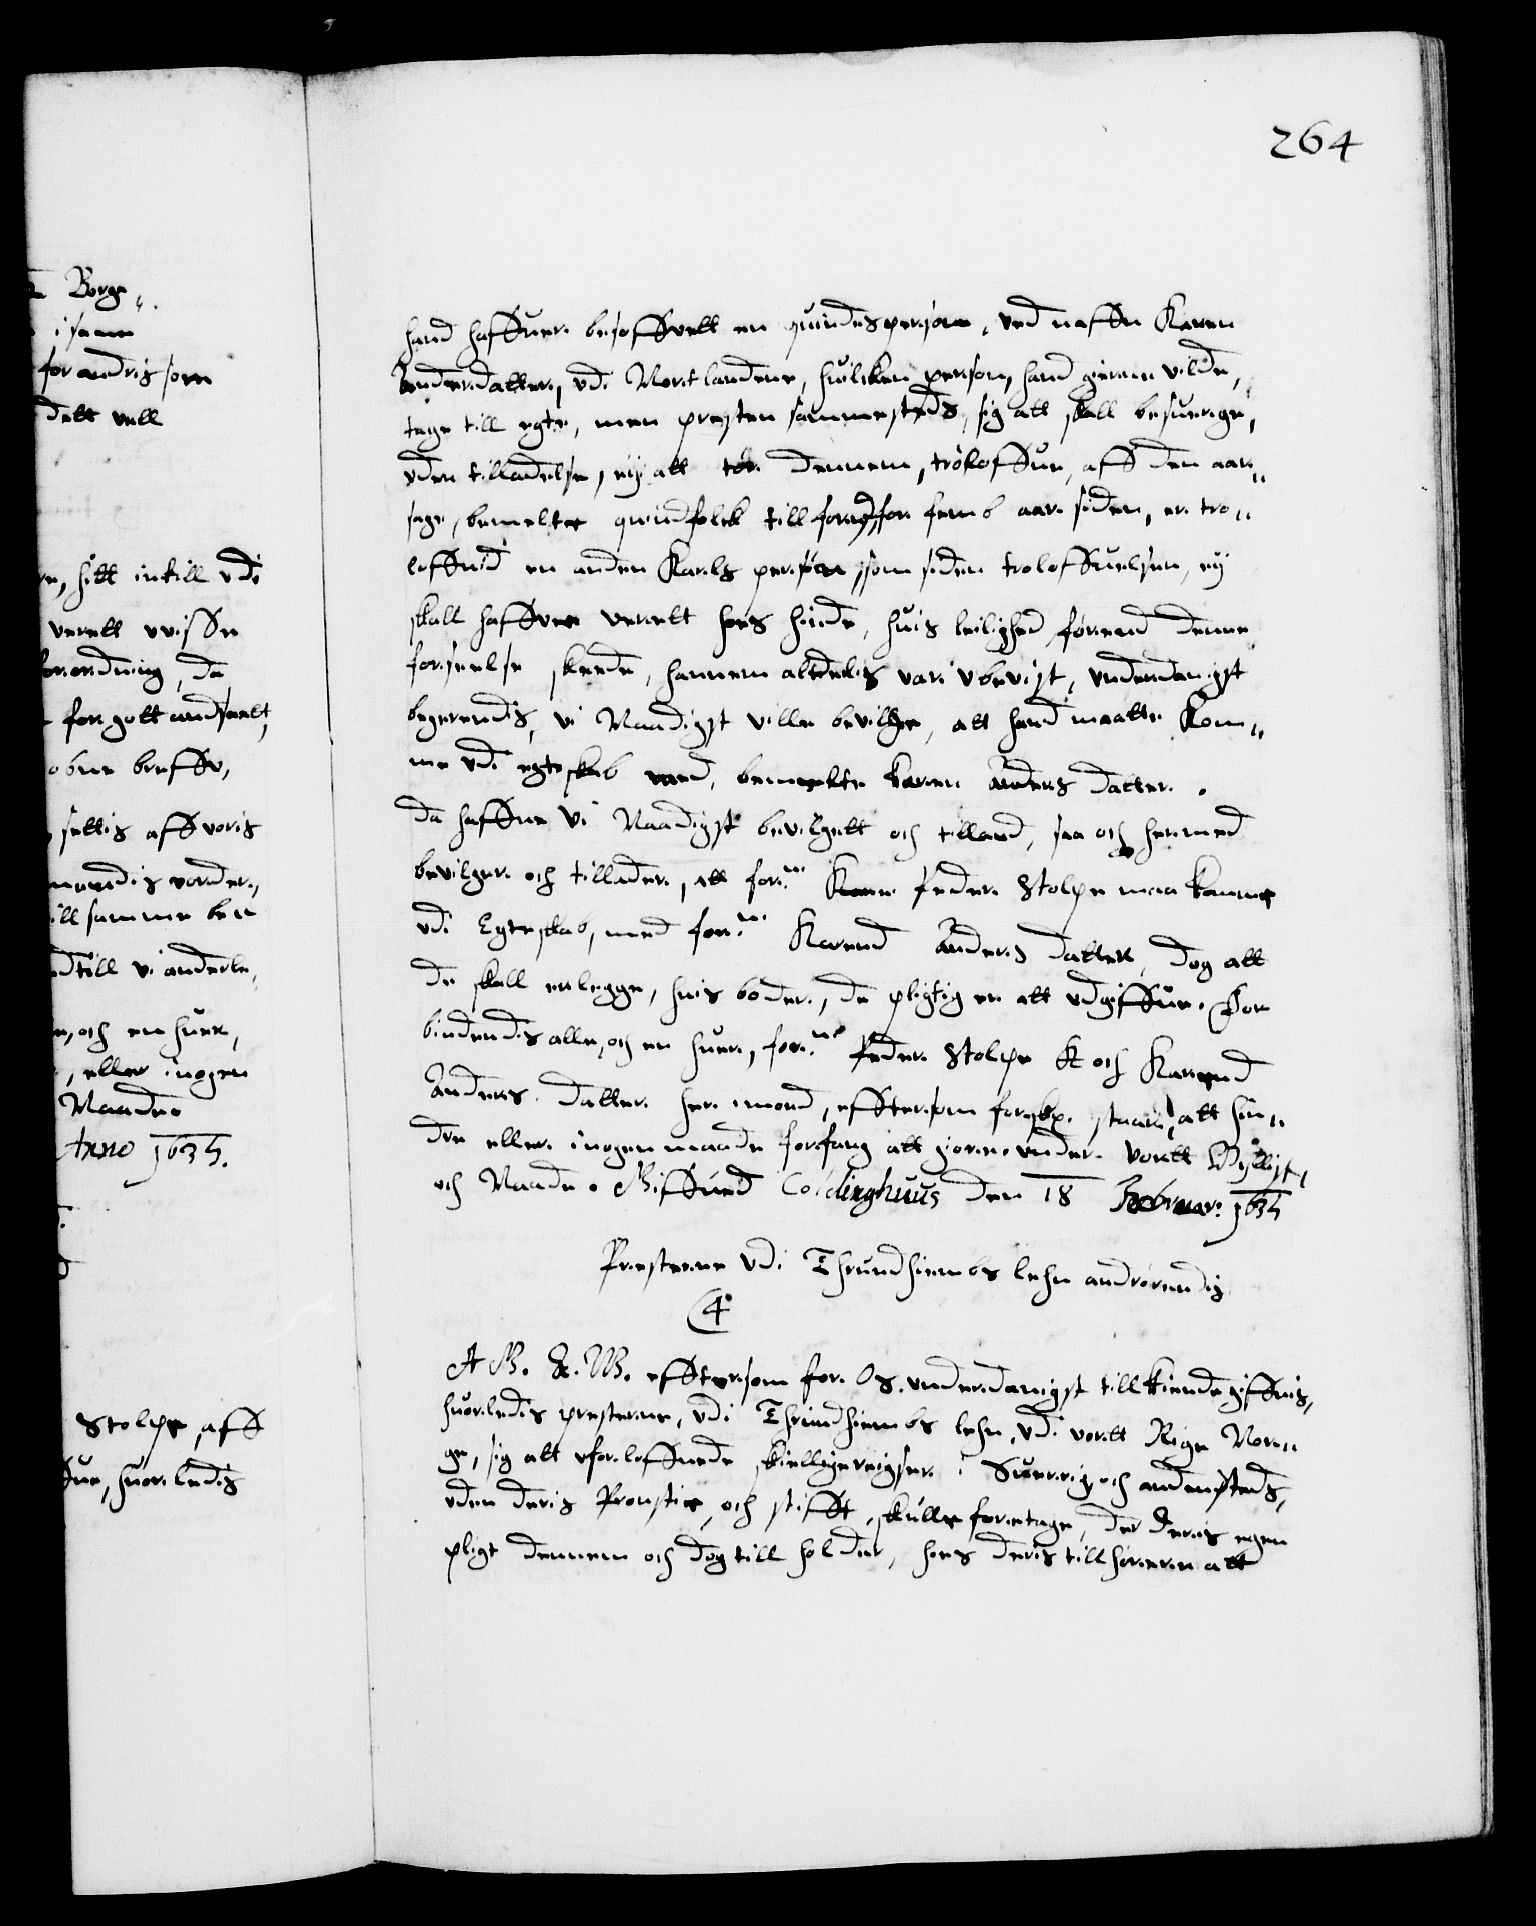 264
Borge
i samme
for andris som
dett vell
sitt intill udi
verett visse
forordning, da
for gott andseet,
obne breffve,
settis aff voris
vorder,
ill samme ben
till vi anderle,
och en huer,
, eller i nogen
Naade.
Anno 1635.
Stolpe, aff
huorledis
hand haffuer besoffuett en quindes person, ved naffn Karen
Andersdatter, udi Nortlandene, huilcken person, hand gierne vilde,
tage till egte, men presten sammesteds, sig att skall besuerge,
uden tilladelse, eij att tør dennem, troloffue, aff den aar„
sage, bemelte quindfolck till forn, for femb aar siden, er tro„
loffuid en anden Karls person, som siden troloffuelsen, eij
skall haffuer verett hos hinde, huis leilighed førend denne
forseelse skeede, hannem aldelis var ubevist, underdanigst
begerendis, vi Naadigst ville bevilge, att hand maatte Kom„
me udi egteskab med, bemelte Karen Anders datter.
da haffue Vi Naadigst bevilgett och tillad, saa och hermed
bevilger och tillader, att forne Peder Stolpe maa komme
udi Egteskab, med forne Karend Anders datter, dog att
de skall erlegge, huis bøder, de pligtig er att udgiffue. For
bindendis alle, och en huer, forne Peder Stolpe och Karend
Anders datter her imod, efftersom forskr. staar, att hin„
dre eller i nogen maade forfang att giøre. under vortt Hyllist,
och Naade. Giffued Coldinghuus den 18 Februar: 1635
Presterne udi Thrundhiembs lehn andrørendis
C 4. A G. E. W. efftersom for Os underdanigst tillkiende giffuis,
huorledis presterne, udi Thrundhiembs lehn, udi vortt Rige Nor„
ge, sig att uforloffuede skielligereigser i Suerrig och andensteds,
uden deris Proustie, och stifft, skulle foretage, der deris egen
pligt dennem och dog till holder, hos deris tillhørere att